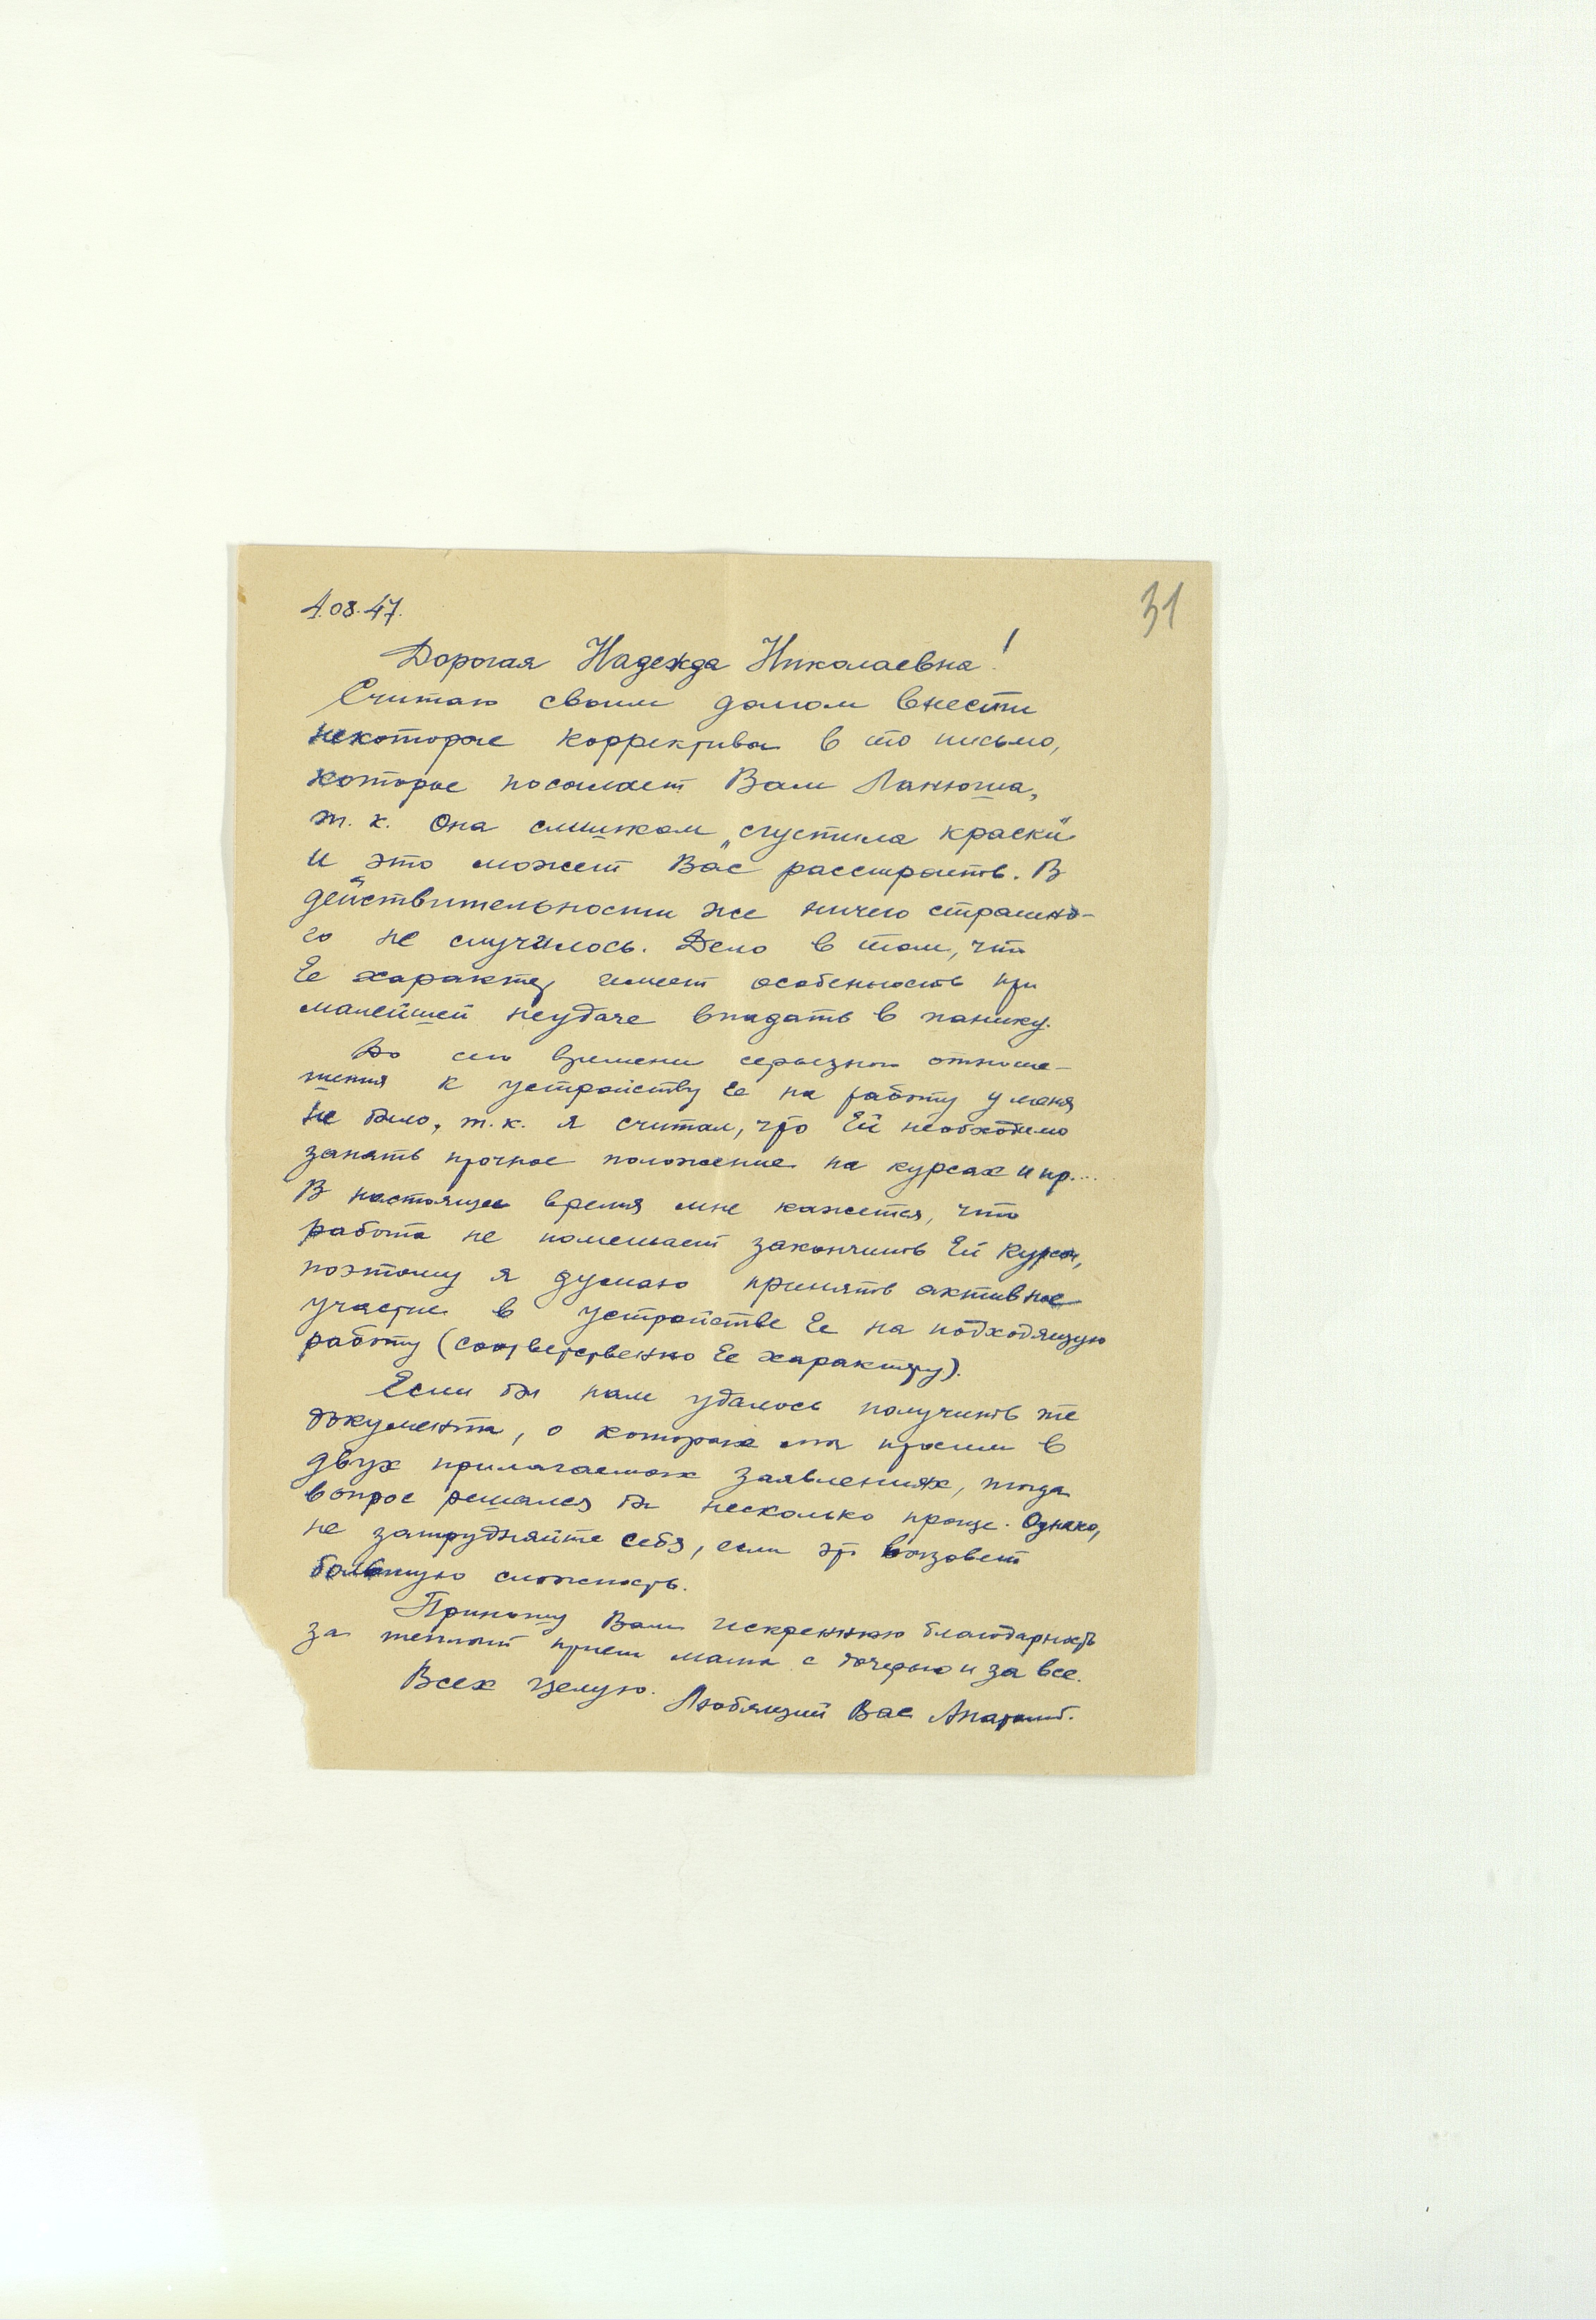 31
1.08.47.
Дорогая Надежда Николаевна!
Считаю своим долгом внести
некоторые коррективы в то письмо,
которое посылает Вам Ланюша,
т. к. Она слишком „сгустила краски"
и это может Вас расстроить. В
действительности же ничего страшно-
го не случилось. Дело в том, что
Ее характер имеет особенность при
малейшей неудаче впадать в панику.
До сего времени серьезного отноше-
ния к устройству Ее на работу у меня
не было, т.к. я считал, что Ей необходимо
занять прочное положение на курсах и пр....
В настоящее время мне кажется, что
работа не помешает закончить Ей курсы,
поэтому я думаю принять активное
участие в устройстве Ее на подходящую
работу (соответственно Ее характеру).
Если бы нам удалось получить те
документы, о которых мы просим в
двух прилагаемых заявлениях, тогда
вопрос решался бы несколько проще. Однако,
не затрудняйте себя, если это вызовет
большую сложность.
Приношу Вам искреннюю благодарность
за теплый прием мамы с дочерью и за все.
Всех целую.
Любящий Вас Анатолий.